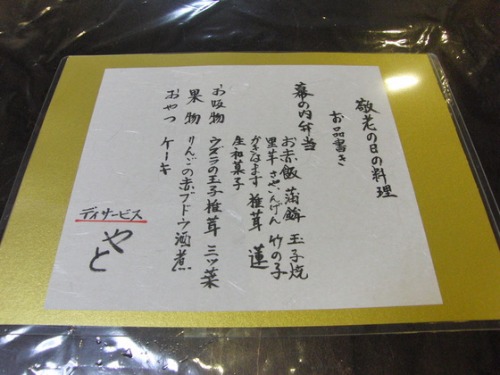 敬老の日の料理
お品書き
幕の内弁当
お赤飯 蒲鉾 玉子焼
里芋 さやいんげん 竹の子
かきなます 椎茸 蓮
生和菓子
お吸物 ウズラの玉子 椎茸 三ッ葉
果物 りんごの赤ブドウ酒煮
おやつ ケーキ
デイサービス
やと